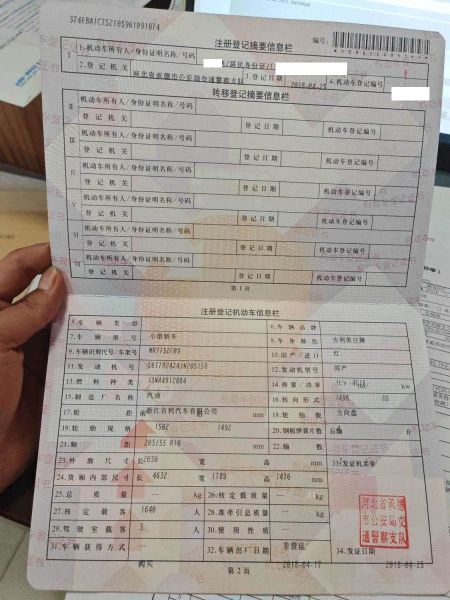 374EBA1C7521059618910 74
注册登记摘要信息栏
编号:
Ⅰ 1.机动车所有人/身份证明名称/号码 /居民身份证/
2.登记机关 河北省承德市公安局交通警察支队 3.登记日期 2018-04-25 4.机动车登记编号
转移登记摘要信息栏
Ⅱ 机动车所有人/身份证明名称/号码
登记机关 登记日期 机动车登记编号
Ⅲ 机动车所有人/身份证明名称/号码
登记机关 登记日期 机动车登记编号
Ⅳ 机动车所有人/身份证明名称/号码
登记机关 登记日期 机动车登记编号
Ⅴ 机动车所有人/身份证明名称/号码
登记机关 登记日期 机动车登记编号
Ⅵ 机动车所有人/身份证明名称/号码
登记机关 登记日期 机动车登记编号
Ⅶ 机动车所有人/身份证明名称/号码
登记机关 登记日期 机动车登记编号
第1页
注册登记机动车信息栏
5.车辆类型 6.车辆品牌
7.车辆型号 小型轿车 8.车身颜色 吉利美日牌
9.车辆识别代号/车架号 MR7152C03 10.国产/进口 红
11.发动机号 12.发动机型号 国产
13.燃料种类 14.排量/功率 kw
15.制造厂名称 汽油 16.转向形式 1498 80
17.轮距 浙江吉利汽车有限公司 mm 18.轮胎数 方向盘
19.轮胎规格 1502 1492 20.钢板弹簧片数 后轴 片
21.轴距 205/55 R16 mm 22.轴数
23.外廓尺寸 长 2650 宽 高 mm 33.发证机关章
24.货厢内部尺寸 长 4632 宽 1789 高 1470 mm
25.总质量 kg 26.核定载质量 kg
27.核定载客 1640 人 28.准牵引总质量 kg
29.驾驶室载客 5 人 30.使用性质
31.车辆获得方式 32.车辆出厂日期 非营运 34.发证日期
购买 2018-04-17 2018-04-25
河北省承德市公安局交通警察支队
第2页